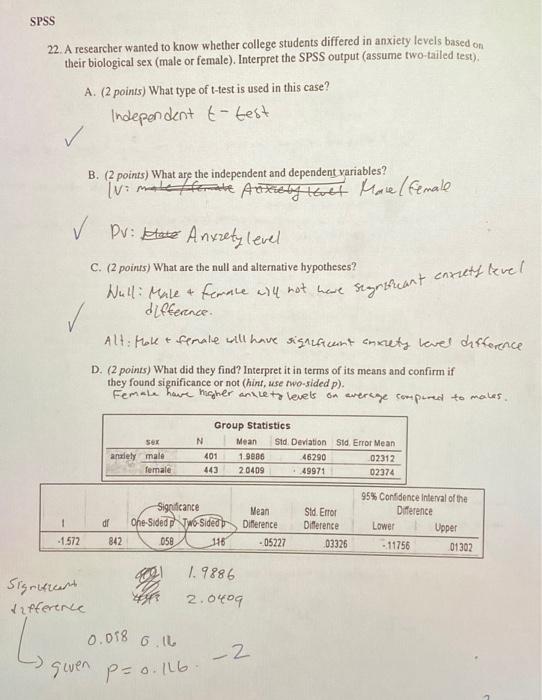 SPSS
22. A researcher wanted to know whether college students differed in anxiety levels based on
their biological sex (male or female). Interpret the SPSS output (assume two-tailed test).
A. (2 points) What type of t-test is used in this case?
Independent t-test
B. (2 points) What are the independent and dependent variables?
IV: male/female Anxiety level Male/female
DV: State Anxiety level
C. (2 points) What are the null and alternative hypotheses?
Null: Male + female will not have significant anxiety level
difference.
Alt: Male + female will have significant anxiety level difference
D. (2 points) What did they find? Interpret it in terms of its means and confirm if
they found significance or not (hint, use two-sided p).
Female have higher anxiety levels on average compared to males.
Group Statistics
sex N Mean Std. Deviation Std. Error Mean
anxiety male 401 1.9886 .46290 .02312
female 443 2.0409 .49971 .02374
95% Confidence Interval of the
Significance Mean Std. Error Difference
t df One-Sided p Two-Sided p Difference Difference Lower Upper
-1.572 842 .058 .116 -.05227 .03326 -.11756 .01302
1.9886
Significant
difference 2.0409
0.058 0.116
given p = 0.116. -2